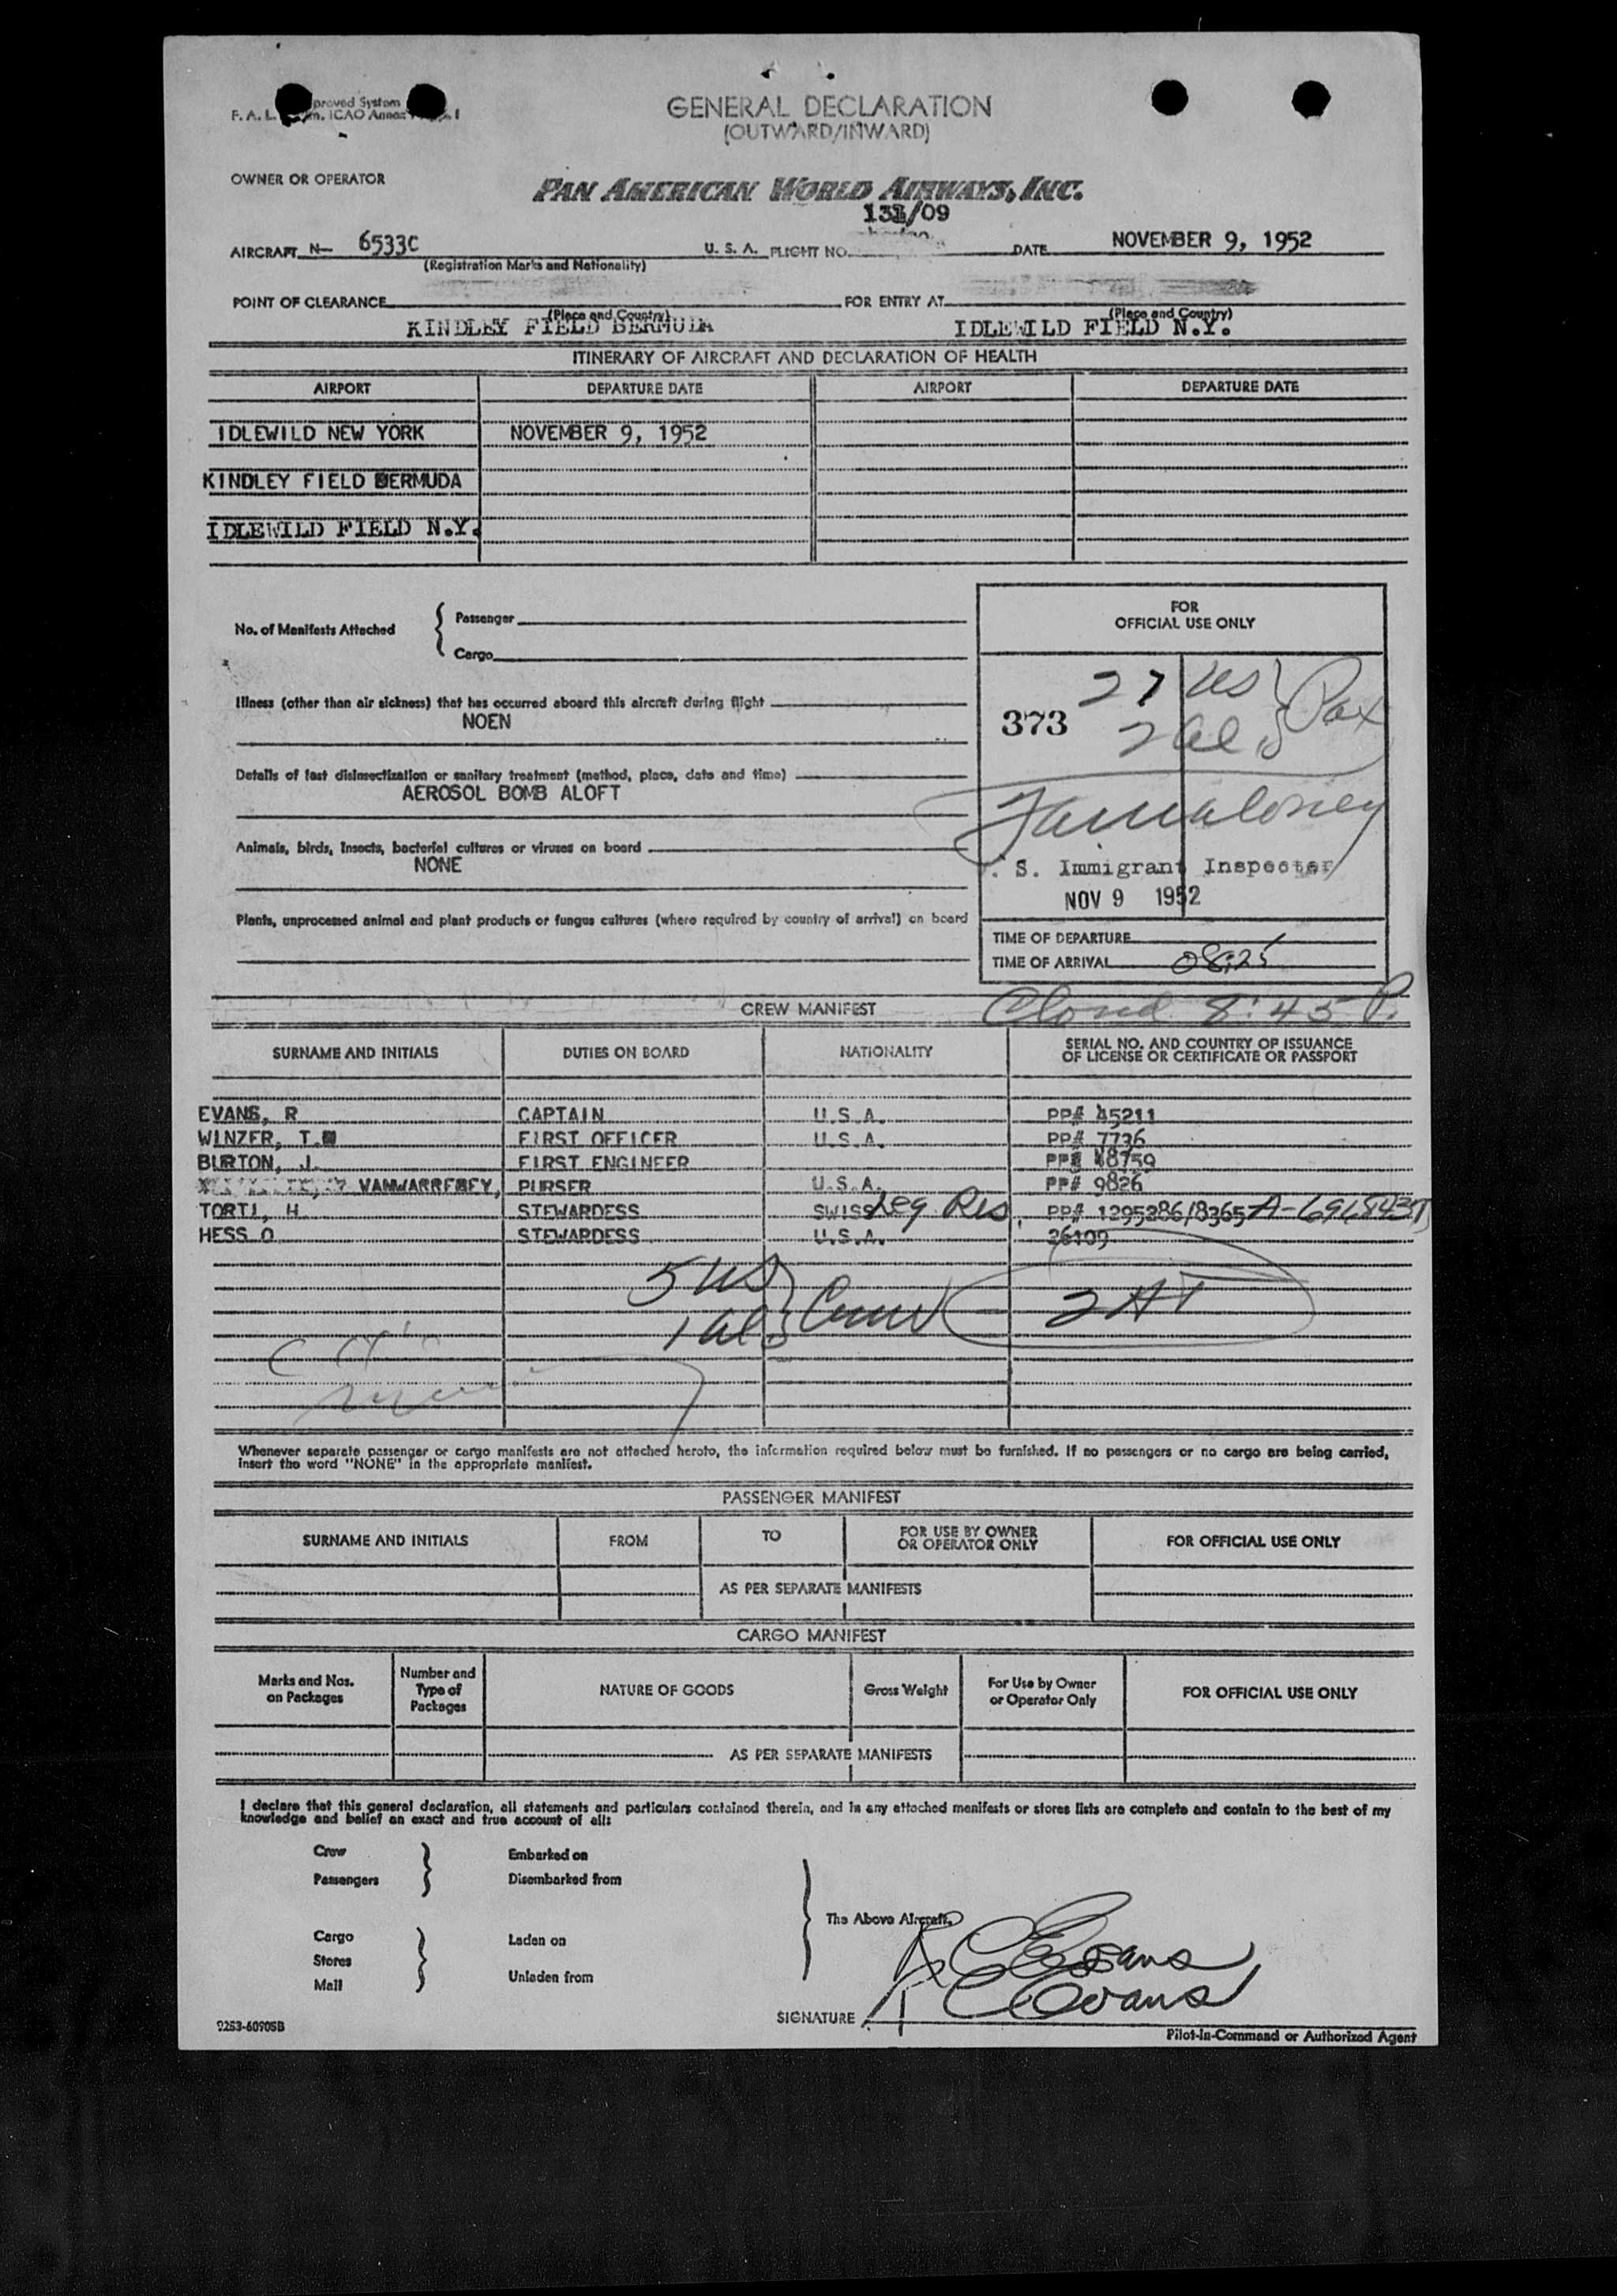 proved System
F. A. L. ICAO Annex
GENERAL DECLARATION
(OUTWARD/INWARD)
OWNER OR OPERATOR
PAN AMERICAN WORLD AIRWAYS, INC.
/09
AIRCRAFT N- 6533C U. S. A. FLIGHT NO. DATE NOVEMBER 9, 1952
(Registration Marks and Nationality)
POINT OF CLEARANCE FOR ENTRY AT
(Place and Country) (Place and Country)
KINDLEY FIELD BERMUDA IDLEWILD FIELD N.Y.
ITINERARY OF AIRCRAFT AND DECLARATION OF HEALTH
AIRPORT DEPARTURE DATE AIRPORT DEPARTURE DATE
IDLEWILD NEW YORK NOVEMBER 9, 1952
KINDLEY FIELD BERMUDA
IDLEWILD FIELD N.Y.
No. of Manifests Attached
Passenger
Cargo
FOR
OFFICIAL USE ONLY
Illness (other than air sickness) that has occurred aboard this aircraft during flight
NOEN
27 US
373
2 Als
Pax
Details of last disinsectization or sanitary treatment (method, place, date and time)
AEROSOL BOMB ALOFT
Maloney
Animals, birds, insects, bacterial cultures or viruses on board
NONE
. S. Immigrant Inspector
NOV 9 1952
Plants, unprocessed animal and plant products or fungus cultures (where required by country of arrival) on board
TIME OF DEPARTURE
TIME OF ARRIVAL 08:25
CREW MANIFEST
Closed 8:45 P.
SURNAME AND INITIALS DUTIES ON BOARD NATIONALITY SERIAL NO. AND COUNTRY OF ISSUANCE
OF LICENSE OR CERTIFICATE OR PASSPORT
EVANS, R CAPTAIN U.S.A. PP# 45211
WINZER, T. FIRST OFFICER U.S.A. PP# 7736
BURTON, J. FIRST ENGINEER PP# 48759
VANWARREBEY, PURSER U.S.A. PP# 9826
TORTI, H. STEWARDESS SWISS Leg Res PP# 1295286/8365
HESS O STEWARDESS U.S.A. 26109
5 US
1 Als
Crew
2 AT
Whenever separate passenger or cargo manifests are not attached hereto, the information required below must be furnished. If no passengers or no cargo are being carried,
insert the word "NONE" in the appropriate manifest.
PASSENGER MANIFEST
SURNAME AND INITIALS FROM TO FOR USE BY OWNER
OR OPERATOR ONLY FOR OFFICIAL USE ONLY
AS PER SEPARATE MANIFESTS
CARGO MANIFEST
Marks and Nos.
on Packages
Number and
Type of
Packages
NATURE OF GOODS
Gross Weight
For Use by Owner
or Operator Only
FOR OFFICIAL USE ONLY
AS PER SEPARATE MANIFESTS
I declare that this general declaration, all statements and particulars contained therein, and in any attached manifests or stores lists are complete and contain to the best of my
knowledge and belief an exact and true account of all:
Crew
Passengers
Embarked on
Disembarked from
Cargo
Stores
Mail
Laden on
Unladen from
The Above Aircraft.
R C Evans
SIGNATURE R C Evans
Pilot-in-Command or Authorized Agent
9253-60905B